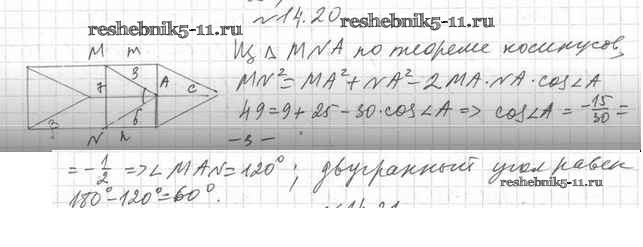 №14.20
reshebnik5-11.ru
reshebnik5-11.ru
M m
3
7
A
c
5
N n
Из Δ MNA по теореме косинусов,
MN²=MA²+NA²-2MA·NA·cos∠A
49=9+25-30·cos∠A => cos∠A = -15/30 =
-3-
= -1/2 => ∠MAN=120°; двугранный угол равен
180°-120°=60°.
reshebnik5-11.ru